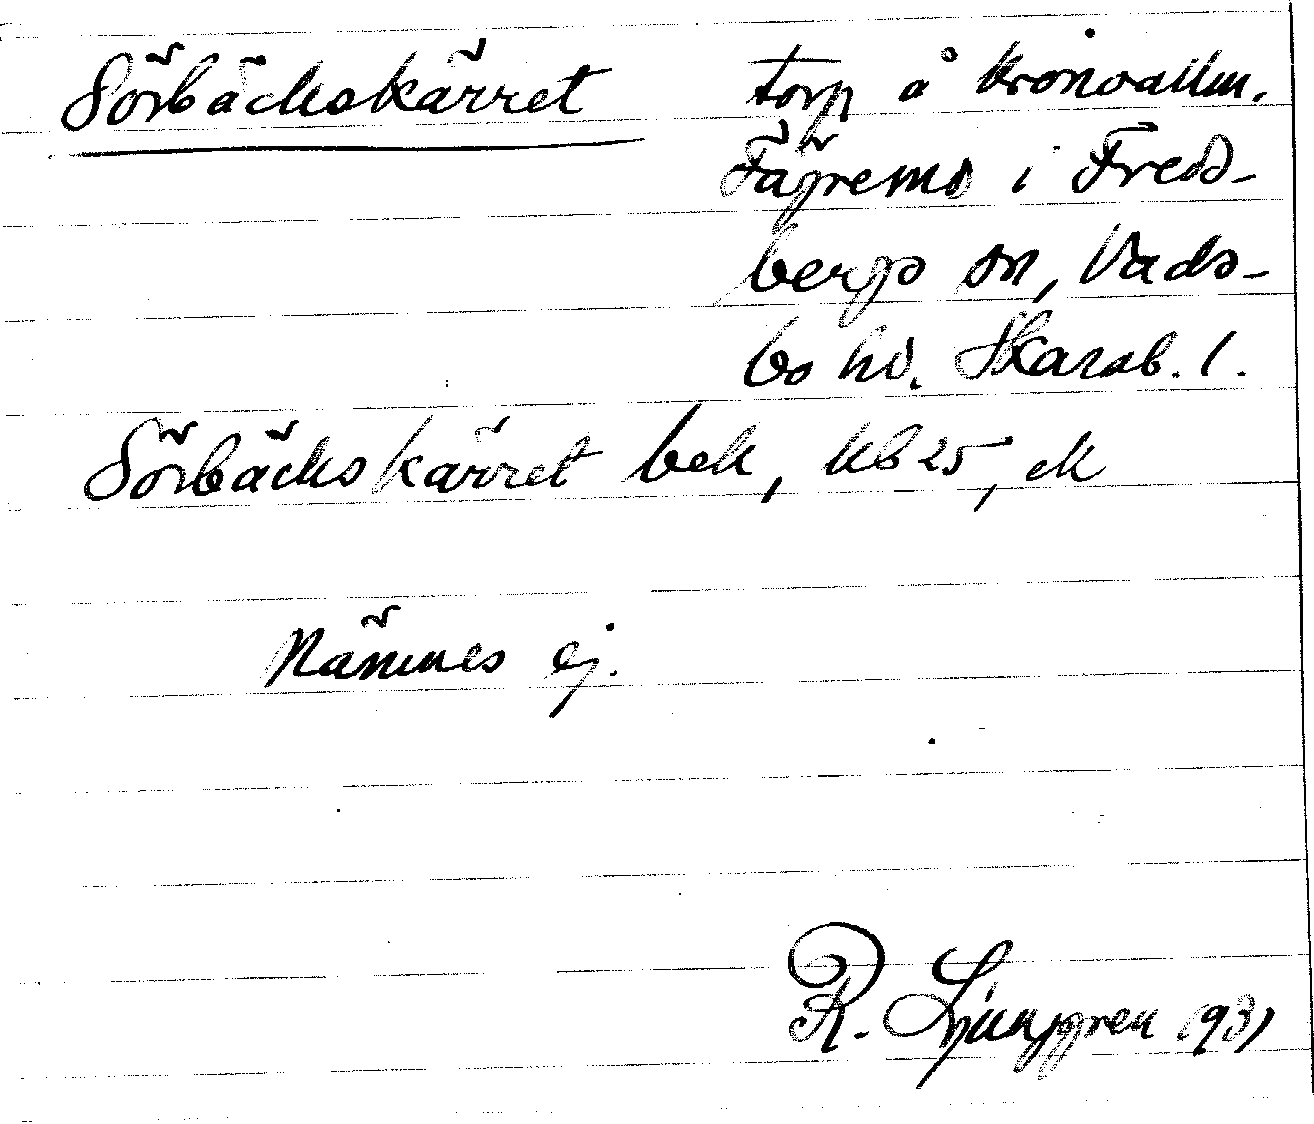 Sörbäckskärret torp å kronoallm.
Fägremo i Fred-
bergs sn, Vads-
bo hd. Skarab. l.
Sörbäckskärret bek, kb 25, ek
Nämnes ej.
R. Ljunggren 1931